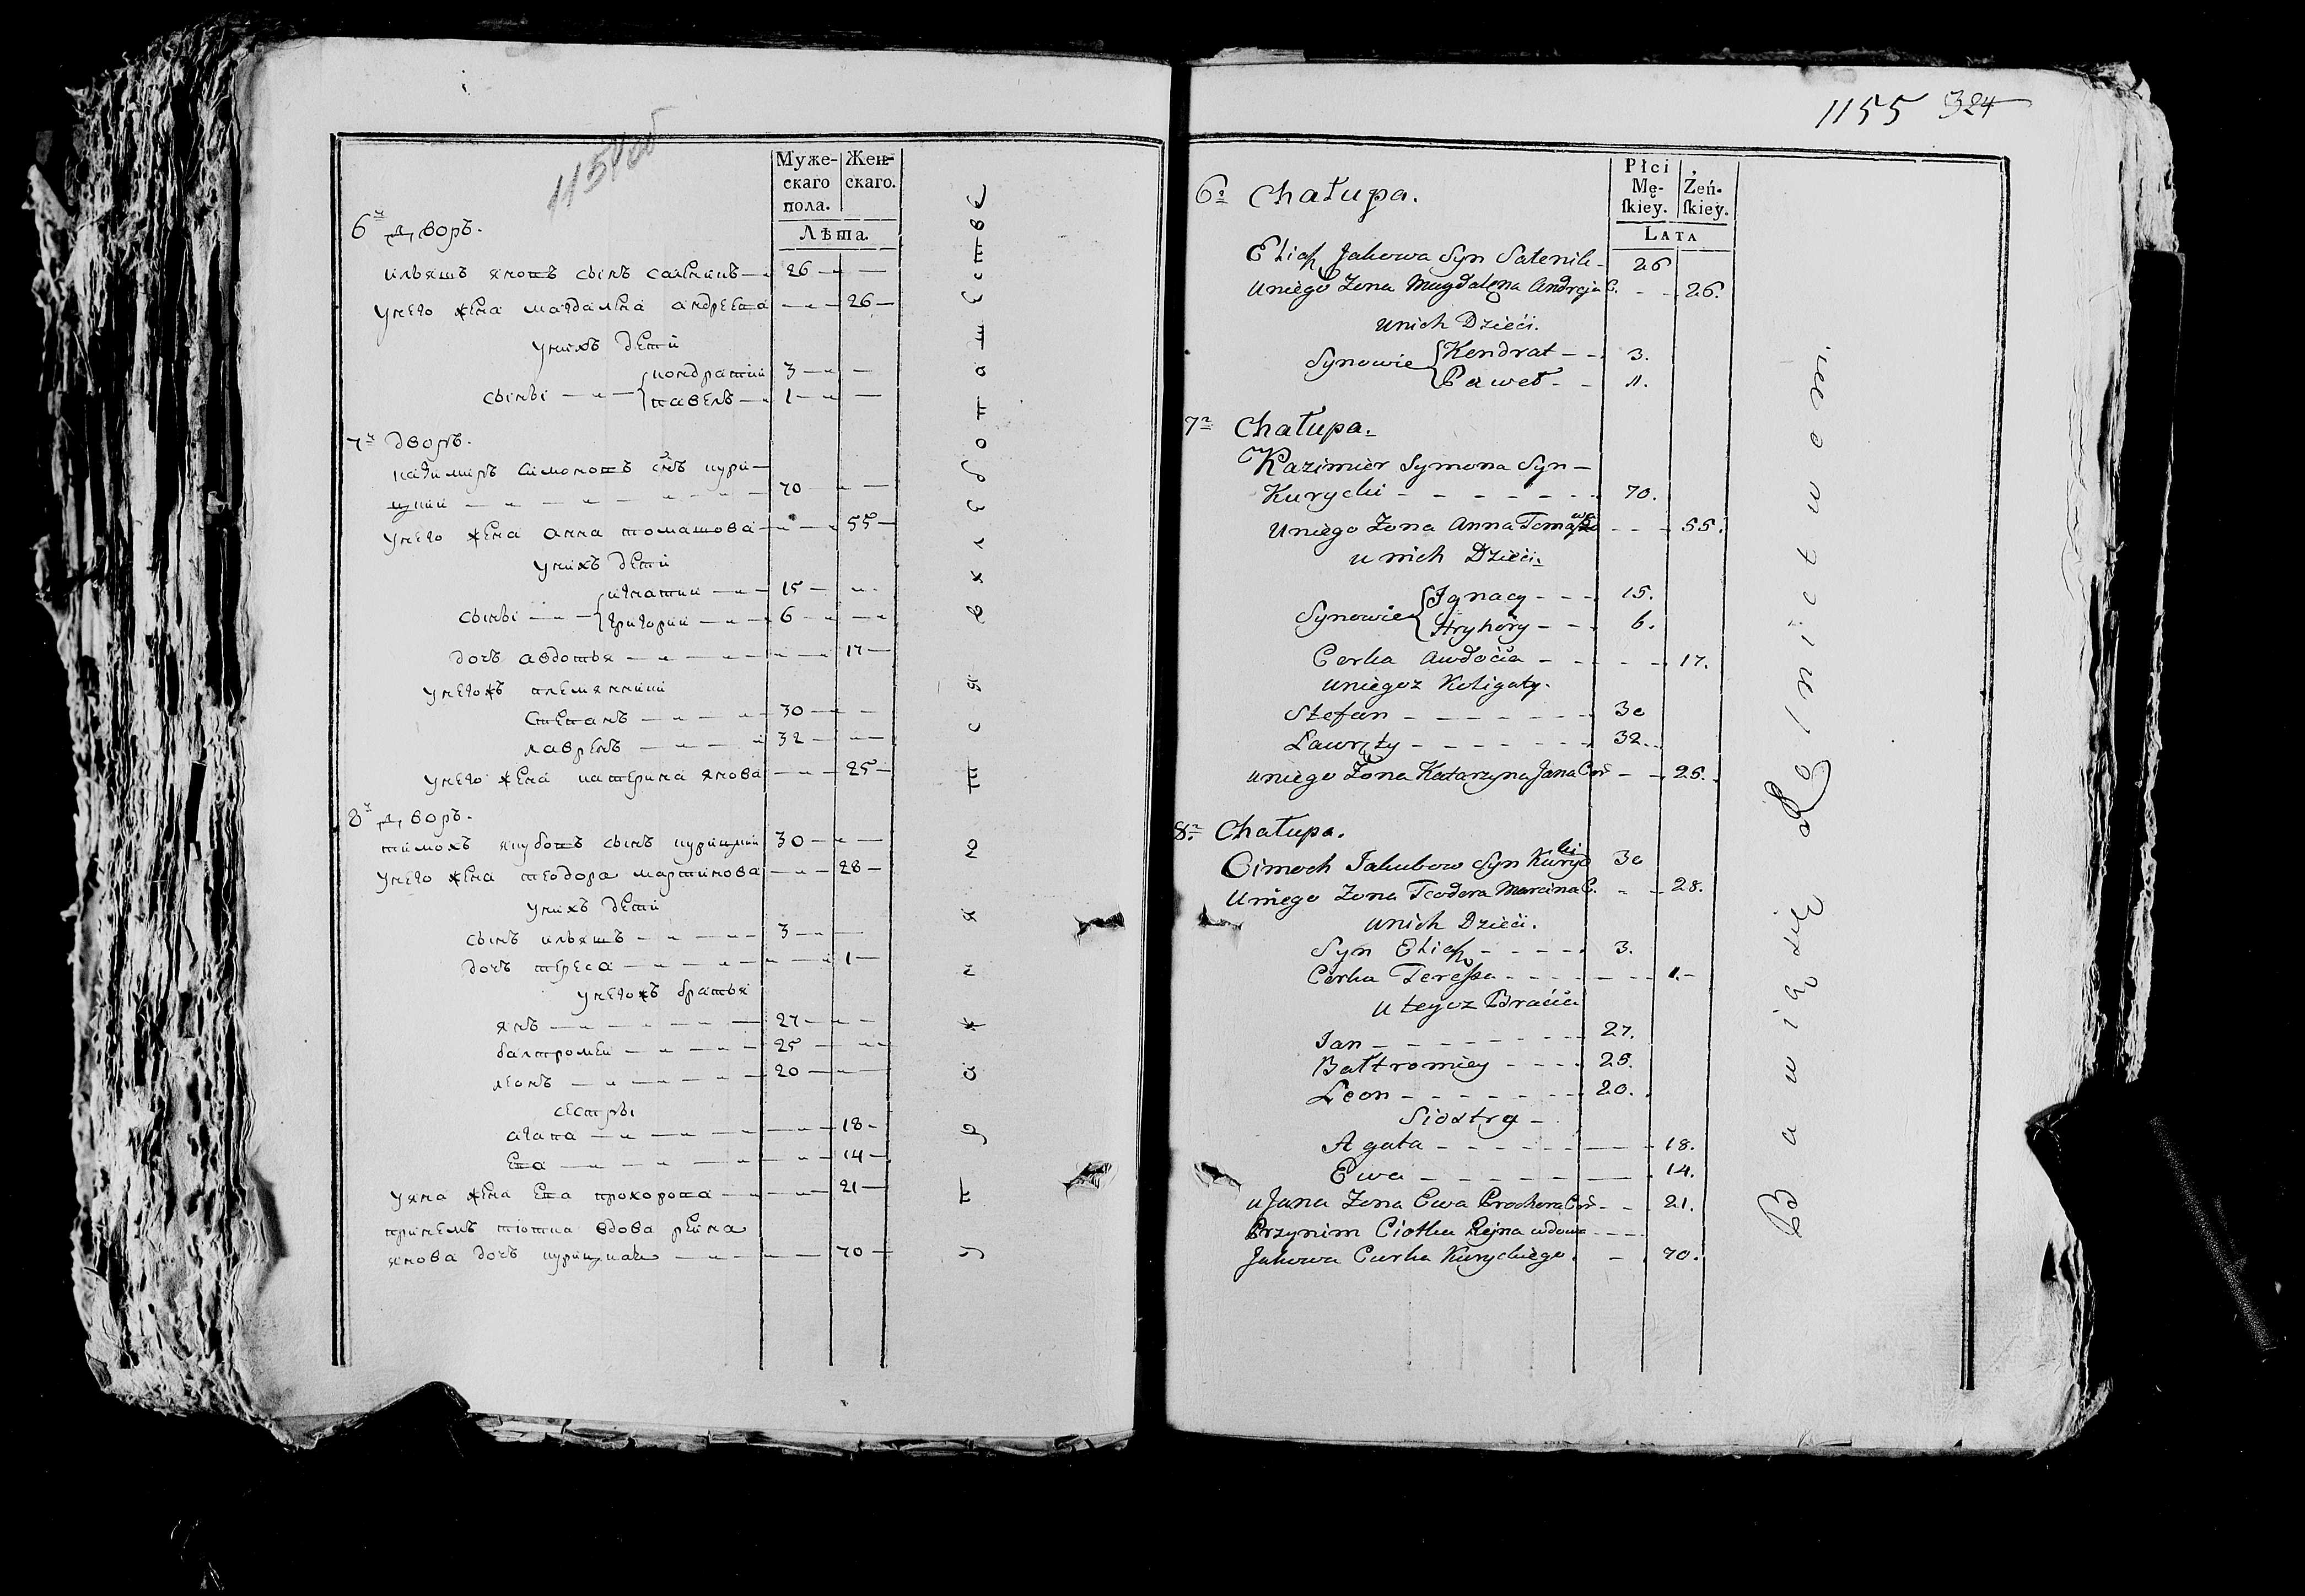 1154об
Муже-
скаго
пола.
Жен-
скаго.
Лѣта.
6й дворъ.
ильяшъ яковъ сынъ 26
унего жена магдалена андреева 26
унихъ дети
сыны кондратий 3
павелъ 1
7й дворъ.
казимиръ симоновъ снъ кури
цкий 70
унего жена анна томашова 55
унихъ дети
сыны игнатии 15
григории 6
дочь авдотья 17
унегожъ племянники
степанъ 30
лавренъ 32
унего жена катерина янова 25
8й дворъ.
тимохъ якубовъ сынъ курицкии 30
унего жена теодора мартинова 28
унихъ дети
сынъ ильяшъ 3
дочь тереса 1
унегожъ братья
янъ 27
балтромеи 25
леонъ 20
сестры
агата 18
ева 14
уяна жена ева прохорова 21
принемъ тиотка вдова реина
янова дочь 70
упражняются в хлебопашестве
1155 324
Płci
Mę-
ſkiey.
Żeń-
ſkiey.
LATA
6a Chałupa.
Eliaſz Jakowa Syn 26
uniego Zona Magdalena Andreja C. 26.
unich Dzieći.
Synowie Kondrat 3.
Paweł 1.
7a Chałupa.
Kazimier Symona Syn
Kurycki 70.
Uniego Zona Anna 55.
u nich Dzieći.
Synowie Ignacy 15.
Hryhory 6.
Corka Awdoćia 17.
uniegoz Koligaty.
Stefan 30
32.
uniego Zona Katarzyna Jana Cor 25.
8a Chałupa.
Cimoch Jakubow Syn Kurycki 30
Uniego Zona Teodora Marcina C. 28.
unich Dzieći.
Syn Eliaſz 3.
Corka Tereſsa 1.
u tegoz Braćia
Jan 27.
Bałtromiey 25.
Leon 20.
Siostry
Agata 18.
Ewa 14.
u Jana Zona Ewa Prochora Cor 21.
Przynim Ciotka Rejna wdowa
Jakowa Curka Kuryckiego. 70.
Bawią się Rolnictwem.